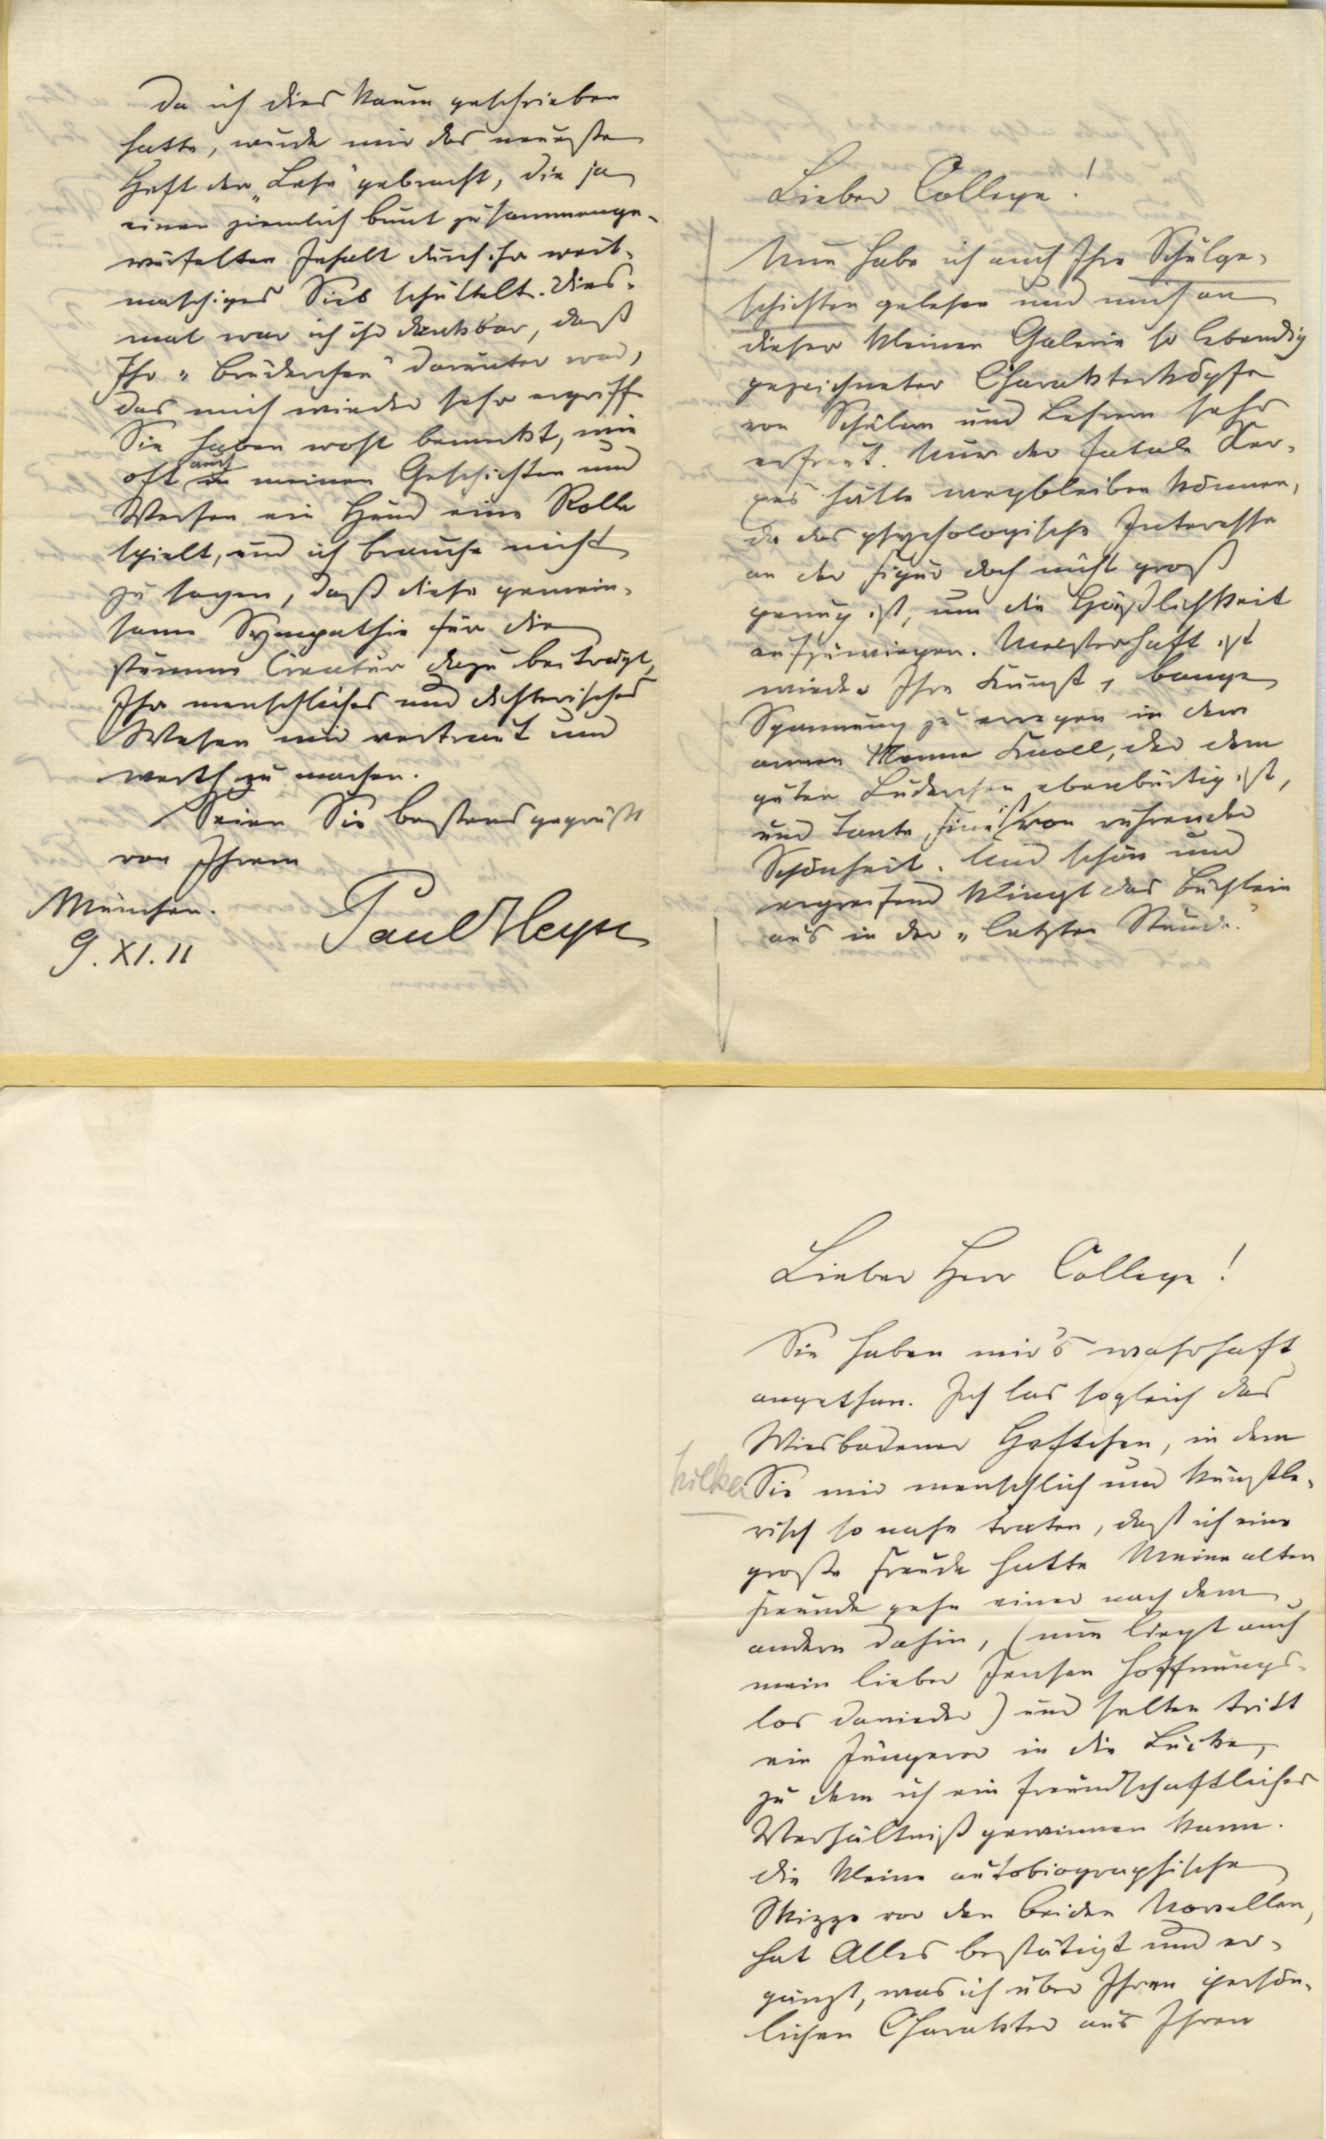 Da ich dies kaum geschrieben
hatte, wurde mir das neueste
Heft der „Lese" gebracht, die ja
einen ziemlich bunt zusammenge-
würfelten Inhalt durch ihr weit-
maschiges Sieb schüttelt. Dies-
mal war ich ihr dankbar, daß
Ihr „Brüderchen" darunter war,
das mich wieder sehr ergriff
Sie haben wohl bemerkt, wie
oft auch in meinen Geschichten und
Versen ein Hund eine Rolle
spielt, und ich brauche nicht
zu sagen, daß diese gemein-
same Sympathie für die
stumme Creatur dazu beiträgt,
Ihr menschliches und dichterisches
Wesen mir vertraut und
werth zu machen.
Seien Sie bestens gegrüßt
von Ihrem
Paul Heyse
München.
9. XI. 11
Lieber College!
Nun habe ich auch Ihre Schulge-
schichten gelesen und mich an
dieser kleinen Galerie so lebendig
gezeichneter Charakterköpfe
von Schülern und Lehrern sehr
erfreut. Nur der fatale
hätte wegbleiben können,
da das psychologische Interesse
an der Figur doch nicht groß
genug ist, um die Häßlichkeit
aufzuwiegen. Meisterhaft ist
wieder Ihre Kunst, bange
Spannung zu erregen in dem
armen Manne Knoll, der dem
guten ebenbürtig ist,
und Tante ist von rührender
Schönheit. Und schön und
ergreifend klingt das Büchlein
aus in der „letzten Stunde".
Lieber Herr College!
Sie haben mir's wahrhaft
angethan. Ich las sogleich das
Wiesbadener Heftchen, in dem
Sie mir menschlich und künstle-
risch so nahe traten, daß ich eine
große Freude hatte Meine alten
Freunde gehn einer nach dem
andern dahin, (nun liegt auch
mein lieber Jensen hoffnungs-
los danieder) und selten tritt
ein Jüngerer in die Lücke,
zu dem ich ein freundschaftliches
Verhältniß gewinnen kann.
Die kleine autobiographische
Skizze vor den beiden Novellen,
hat Alles bestätigt und er-
gänzt, was ich über Ihren persön-
lichen Charakter aus Ihren